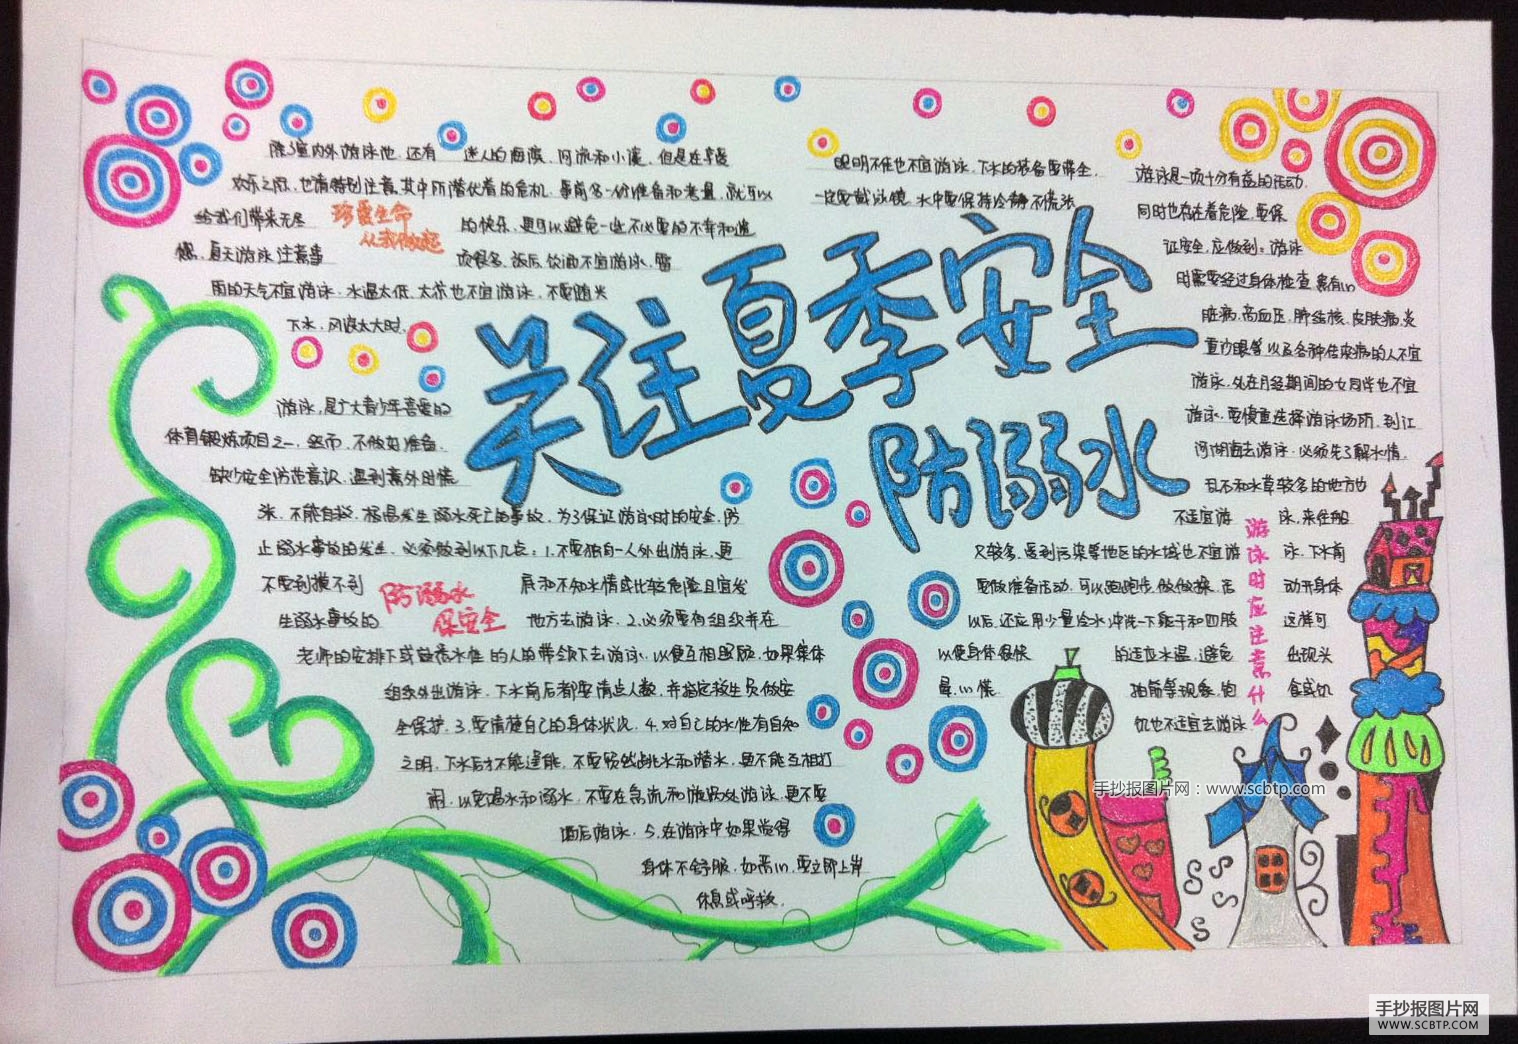 除了室内外游泳池，还有迷人的海滨、河流和小溪，但是在享受
欢乐之际，也请特别注意其中所潜伏着的危机，事前多一份准备和考量，就可以
给我们带来无尽的快乐，更可以避免一些不必要的不幸和遗
憾，夏天游泳注意事项很多，饭后、饮酒不宜游泳，雷
雨的天气不宜游泳，水温太低、太凉也不宜游泳，不要随兴
下水，风浪太大时，
珍爱生命
从我做起
眼明不佳也不宜游泳，下水的装备要带全，
一定要戴泳镜，水中要保持冷静不慌张
关注夏季安全
防溺水
游泳，是广大青少年喜爱的
体育锻炼项目之一，然而，不做好准备、
缺少安全防范意识，遇到意外时慌
张、不能自救，极易发生溺水死亡的事故，为了保证游泳时的安全，防
止溺水事故的发生，必须做到以下几点：1.不要独自一人外出游泳，更
不要到摸不到 和不知水情或比较危险且宜发
生溺水事故的地方去游泳。2.必须要有组织并在
老师的安排下或熟悉水性的人的带领下去游泳，以便互相照顾，如果集体
组织外出游泳，下水前后都要清点人数，并指定救生员做安
全保护。3.要清楚自己的身体状况。4.对自己的水性有自知
之明，下水后才不能逞能，不要贸然跳水和潜水，更不能互相打
闹，以免喝水和溺水，不要在急流和漩涡处游泳，更不要
酒后游泳。5.在游泳中如果觉得
身体不舒服，如恶心，要立即上岸
休息或呼救。
防溺水
保安全
游泳是一项十分有益的活动，
同时也存在着危险，要保
证安全，应做到：游泳
时需要经过身体检查，患有心
脏病、高血压、肺结核、皮肤病、炎
重沙眼等以及各种传染病的人不宜
游泳，处在月经期间的女同学也不宜
游泳，要慎重选择游泳场所，到江
河湖海去游泳，必须先了解水情，
且不和水草较多的地方也
不适宜游泳，来往船
又较多，遇到污染等地区的水域也不宜游泳，下水前
要做准备活动，可以跑跑步、做做操，活动开身体
以后，还应用少量冷水冲洗一下躯干和四肢这样可
以使身体很快的适应水温，避免出现头
晕、心慌抽筋等现象，饱食或饥
饥也不适宜去游泳
游泳时应注意什么
手抄报图片网：www.scbtp.com
手抄报图片网
WWW.SCBTP.COM